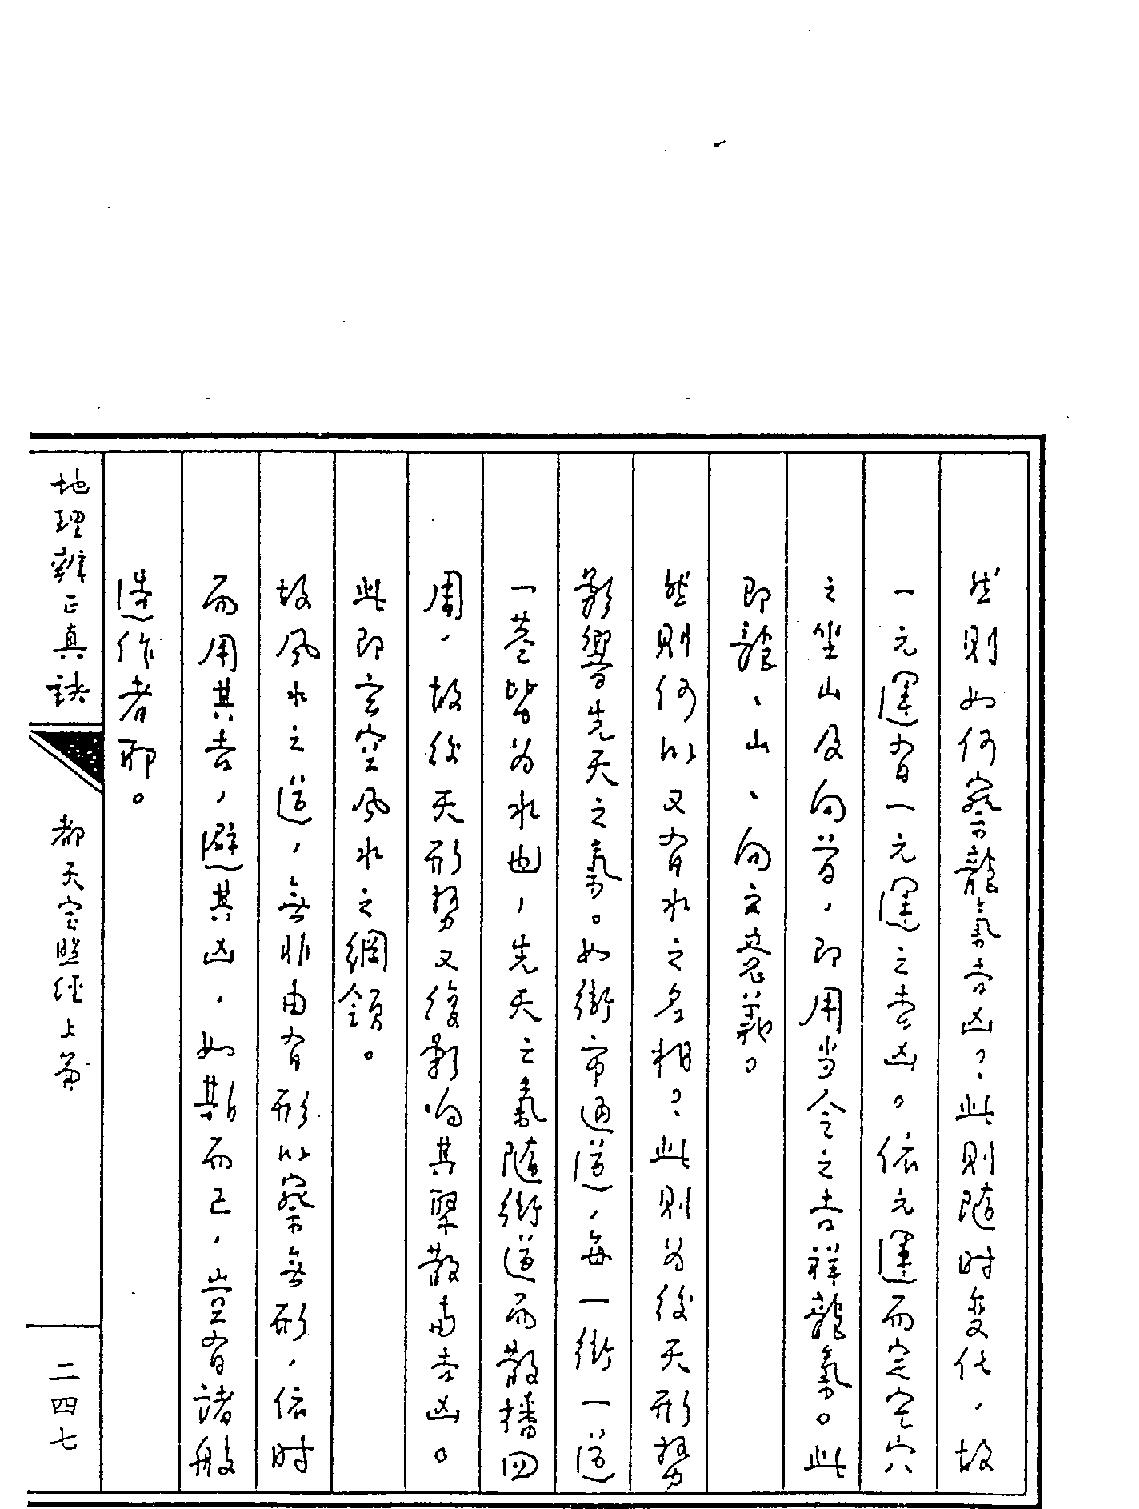 然則如何察龍氣吉凶？此則隨时变化，故
一元運有一元運之吉凶。依元運而定宅穴
之坐山及向首，即用当令之吉祥龍氣。此
即龍、山、向之奧義。
然則何以又有水之名相？此則为後天形勢
影響先天之氣。如街市通道，每一街一道
一巷皆为水也，先天之氣隨街道而散播四
周，故後天形勢又復影响其聚散與吉凶。
此即玄空風水之綱領。
故風水之道，無非由有形以察無形，依时
而用其吉，避其凶，如斯而已，豈有諸般
造作者耶。
地理辨正真訣
都天宝照經上篇
二四七